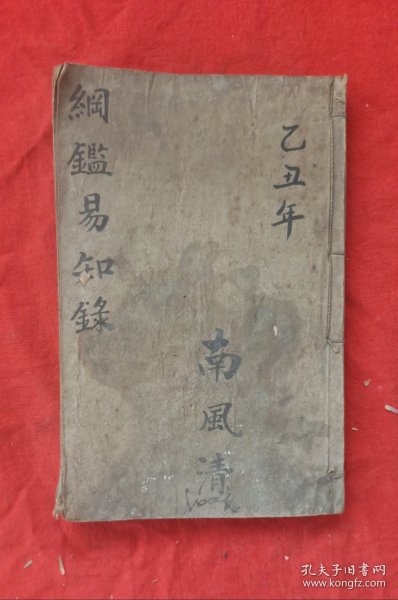 乙丑年
南風清
綱鑑易知錄
孔夫子旧书网
www.kongfz.com